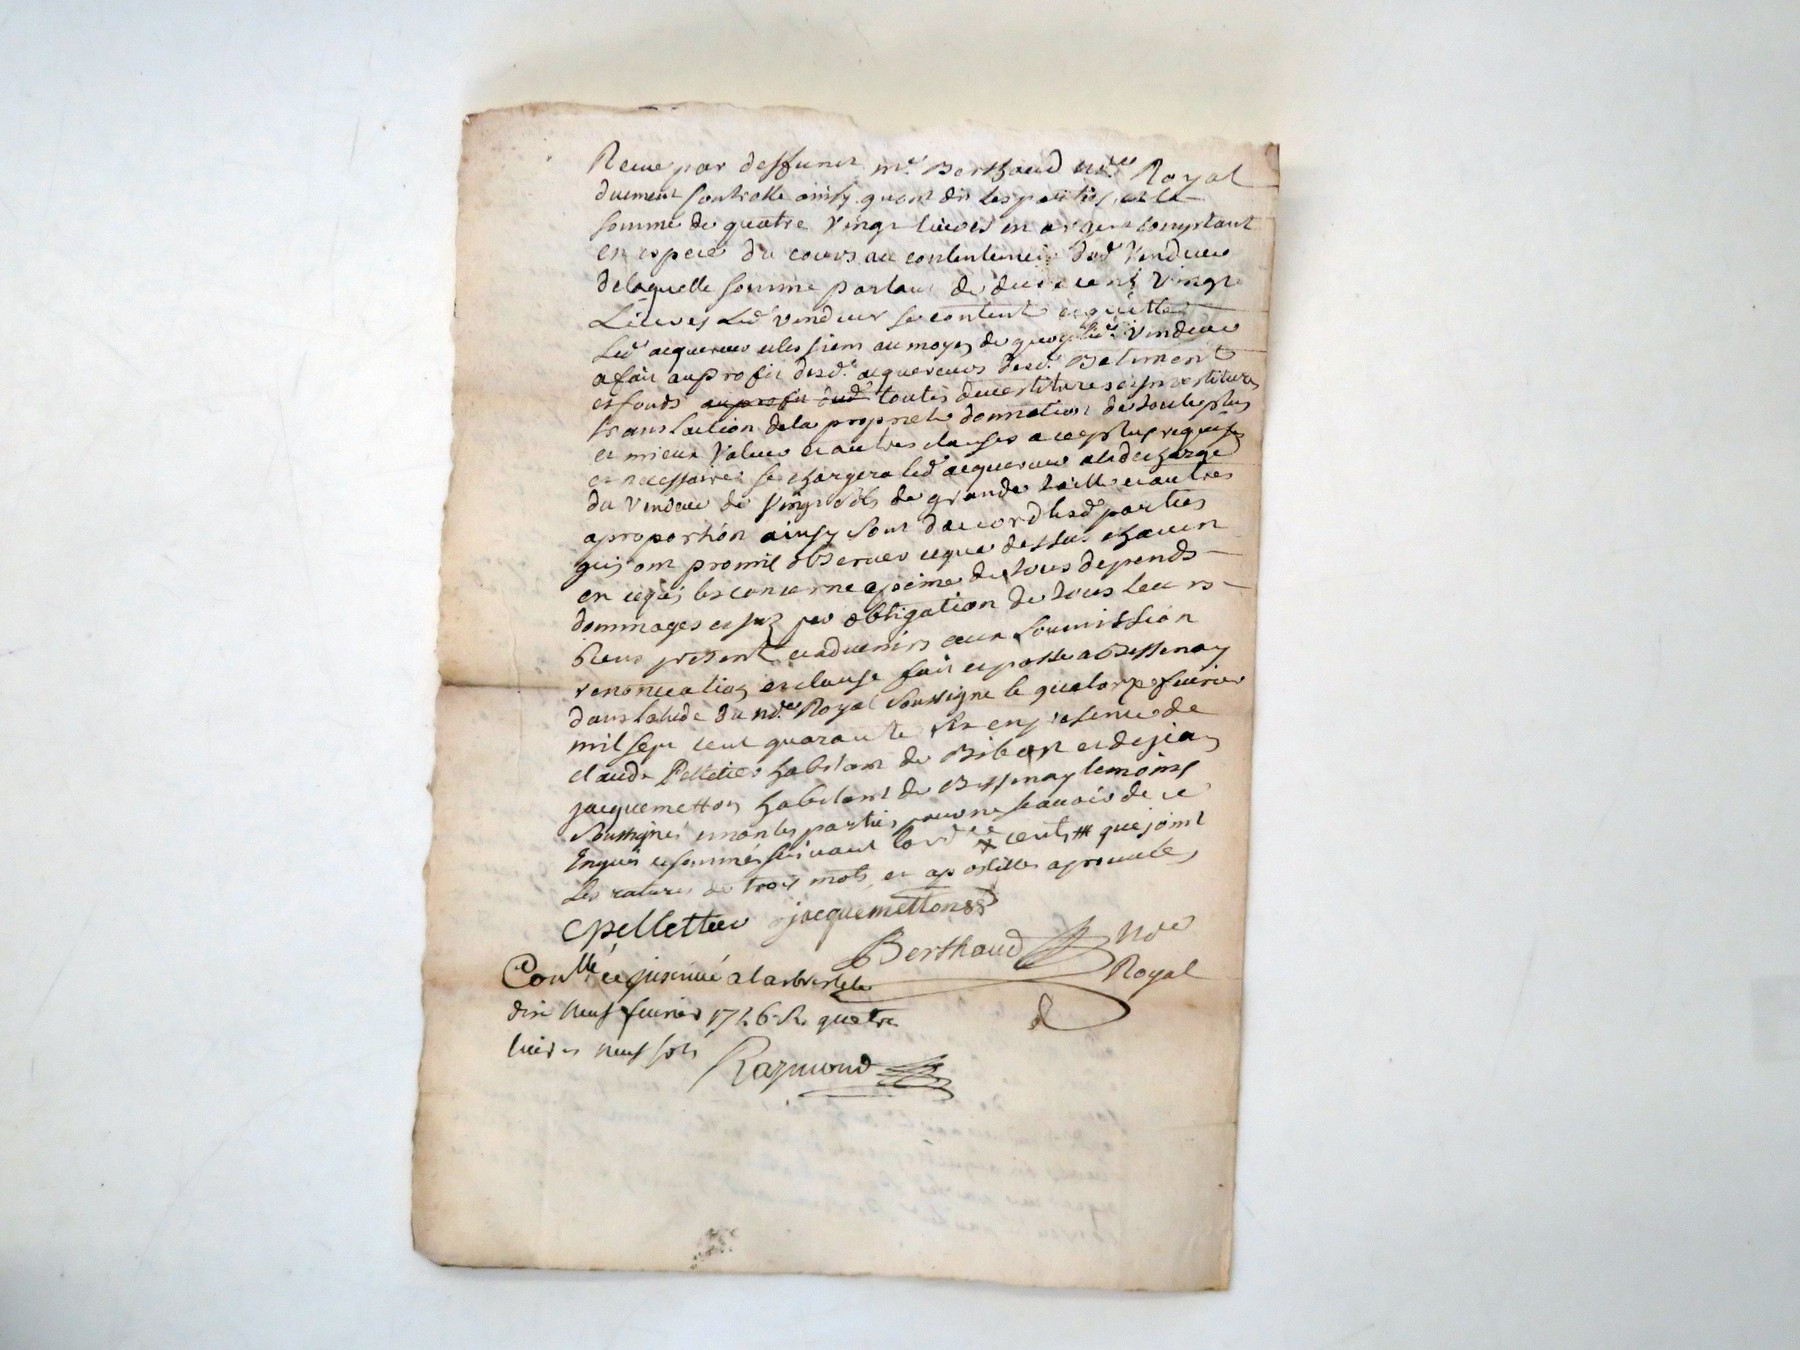 Receue par deffunct me Berthaud nore Royal
duement controlle ainsy quont dit les parties, et la
somme de quatre vingt livres en argent comptant
en espece du cours au contentement dud vendeur
delaquelle somme partant de deux cent vingt
Livres led vendeur se contente et quitte
led acquereur et les siens au moyen de quoy led vendeur
a fait au profit desd acquereurs desd Batiment
et fonds au profit dud toutes devestitures et investitures
translation dela propriete donnation de toute plus
et mieux value et autres clauses a ce plus requises
et necessaires se chargera led acquereur a la decharge
du vendeur de vingt sols de grande taille et autres
a proportion ainsy sont d'accord lesd parties
qui ont promis observer ce que dessus chacun
en ce qui les concerne a peine de tous depends
dommages et par obligation de tous leurs
biens present et advenirs soumission
renonciation et clause fait et passe a Bessenay
dans l'etude du nore Royal soussigne le quatorze fevrier
mil sept cent quarante six en presence de
claude Pelletier habitant de Bibost et de jean
jacquemetton habitant de Bessenay temoins
soussignes et non les parties pour ne scavoir de ce
Enquis et sommes suivant lord ce x cent que joint
les ratures de trois mots, et apostilles aprouvées
cpellettier jacquemetton
Berthaud Nore
Royal
Conllé et jnsinué a larbresle le
dix neuf fevrier 1746 R quatre
livres neuf sols
Raymond